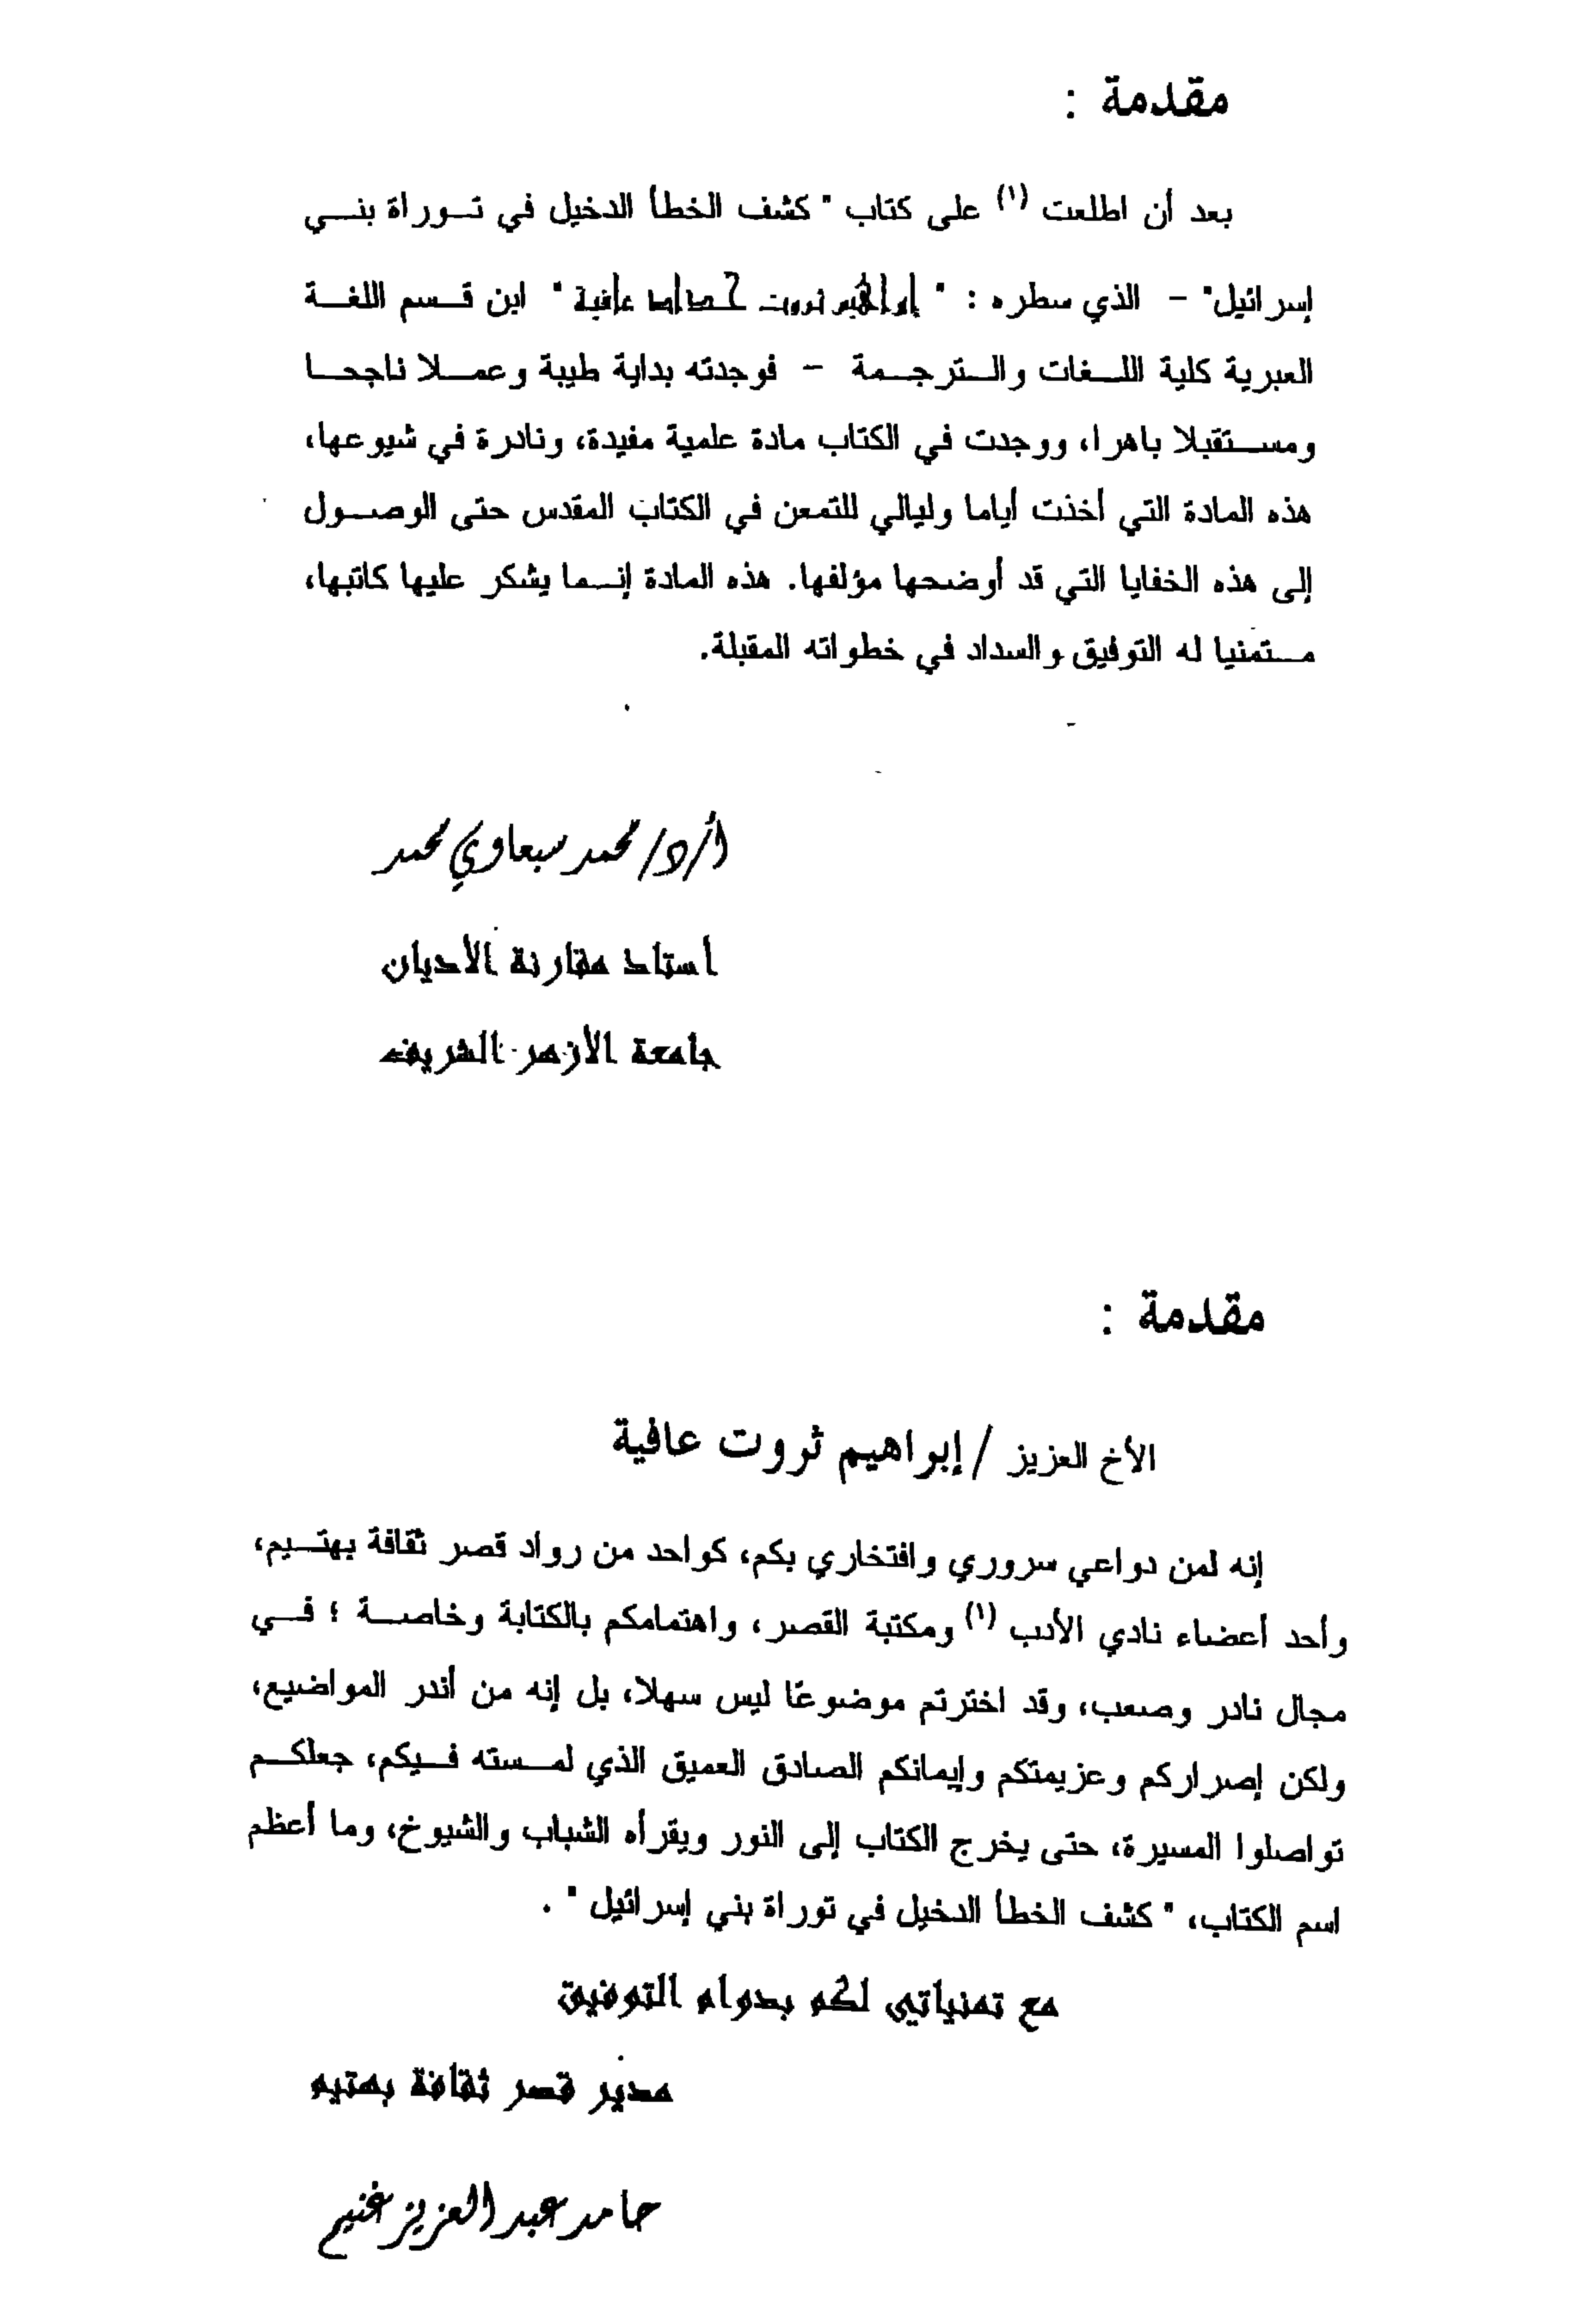 مقدمة :
بعد أن اطلعت (١) على كتاب " كشف الخطأ الدخيل في تـوراة بنـي
إسرائيل" – الذي سطره : " إبراهيم ثروت عافية " ابن قـسم اللغـة
العبرية كلية اللـغات والـترجـمة – فوجدته بداية طيبة وعمـلا ناجحـا
ومسـتقبلا باهرا، ووجدت في الكتاب مادة علمية مفيدة، ونادرة في شيوعها،
هذه المادة التي أخذت أياما وليالي للتمعن في الكتاب المقدس حتى الوصـول
إلى هذه الخفايا التي قد أوضحها مؤلفها. هذه المادة إنـما يشكر عليها كاتبها،
مـتمنيا له التوفيق والسداد في خطواته المقبلة.
أ/د/ محمد سبعاوي محمد
أستاذ مقارنة الأديان
جامعة الأزهر الشريف
مقدمة :
الأخ العزيز / إبراهيم ثروت عافية
إنه لمن دواعي سروري وافتخاري بكم، كواحد من رواد قصر ثقافة بهتـيم،
وأحد أعضاء نادي الأدب (١) ومكتبة القصر، واهتمامكم بالكتابة وخاصـة ؛ فـي
مجال نادر وصعب، وقد اخترتم موضوعًا ليس سهلا، بل إنه من أندر المواضيع،
ولكن إصراركم وعزيمتكم وإيمانكم الصادق العميق الذي لمـسته فـيكم، جعلكـم
تواصلوا المسيرة، حتى يخرج الكتاب إلى النور ويقرأه الشباب والشيوخ، وما أعظم
اسم الكتاب، " كشف الخطأ الدخيل في توراة بني إسرائيل " .
مع تمنياتي لكم بدوام التوفيق
مدير قصر ثقافة بهتيم
حامد عبد العزيز غنيم